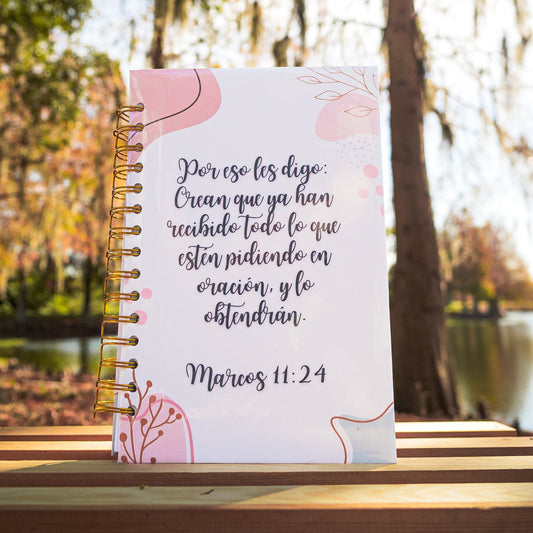 Por eso les digo:
Crean que ya han
recibido todo lo que
estén pidiendo en
oración, y lo
obtendrán.
Marcos 11:24